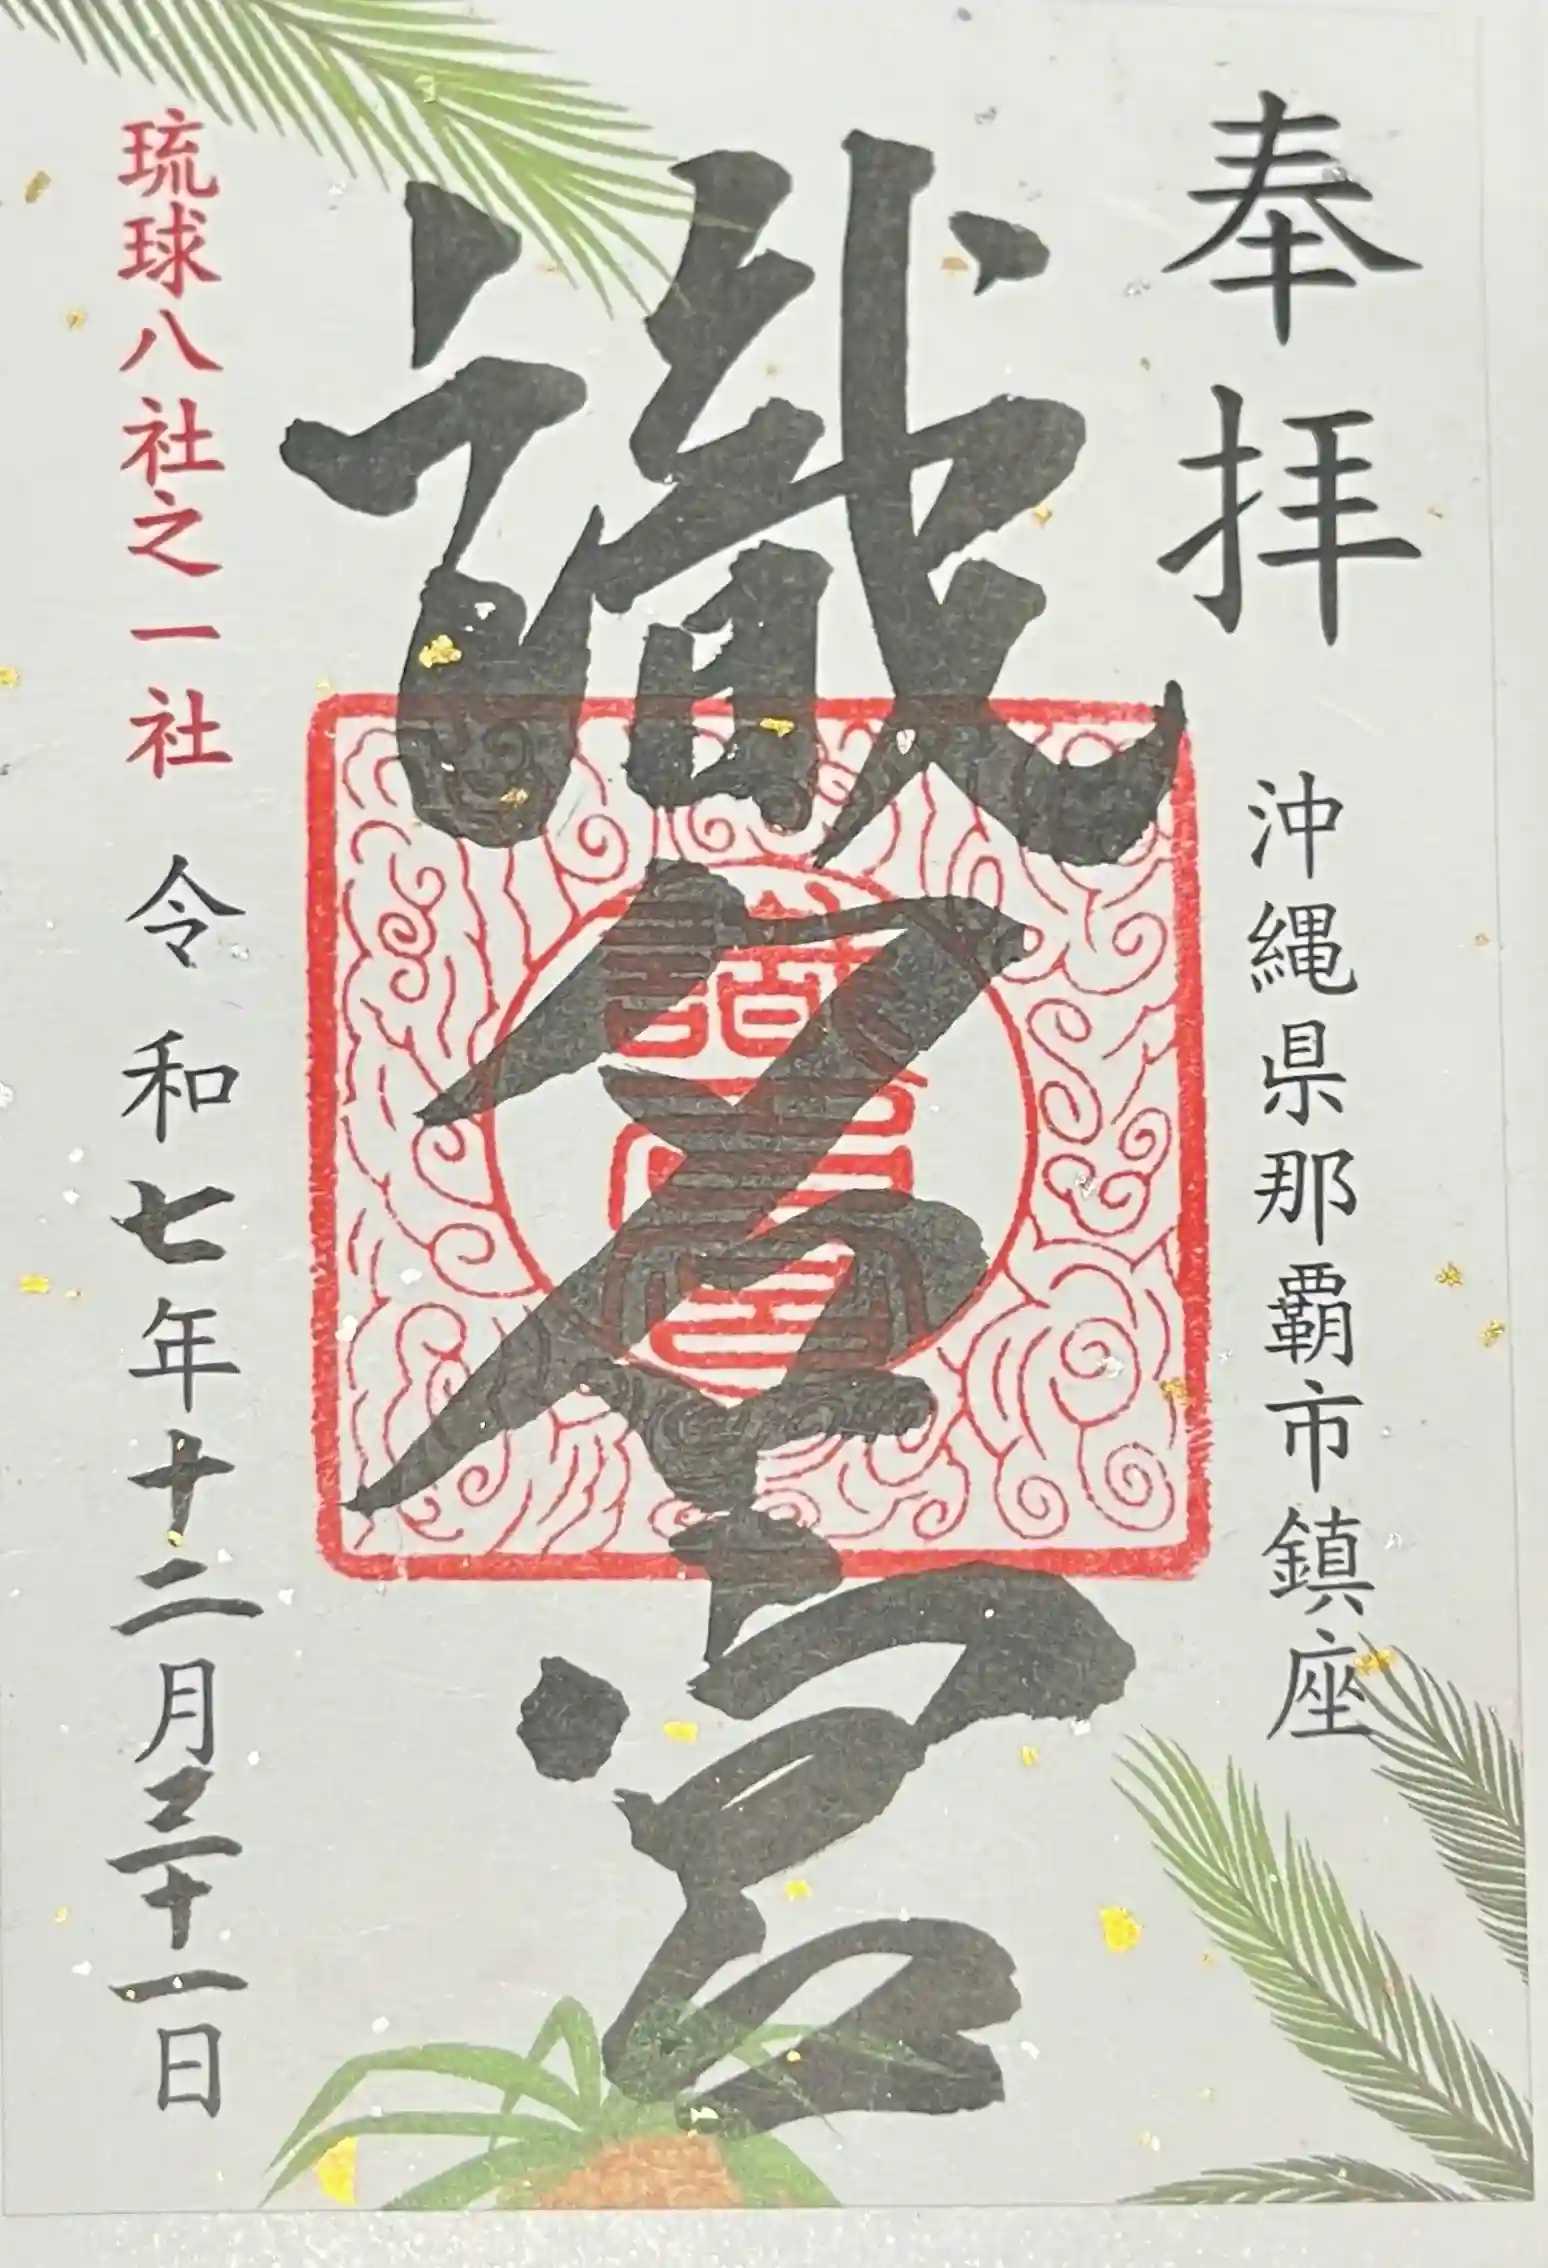 奉拝
沖縄県那覇市鎮座
識名宮
琉球八社之一社
令和七年十二月三十一日